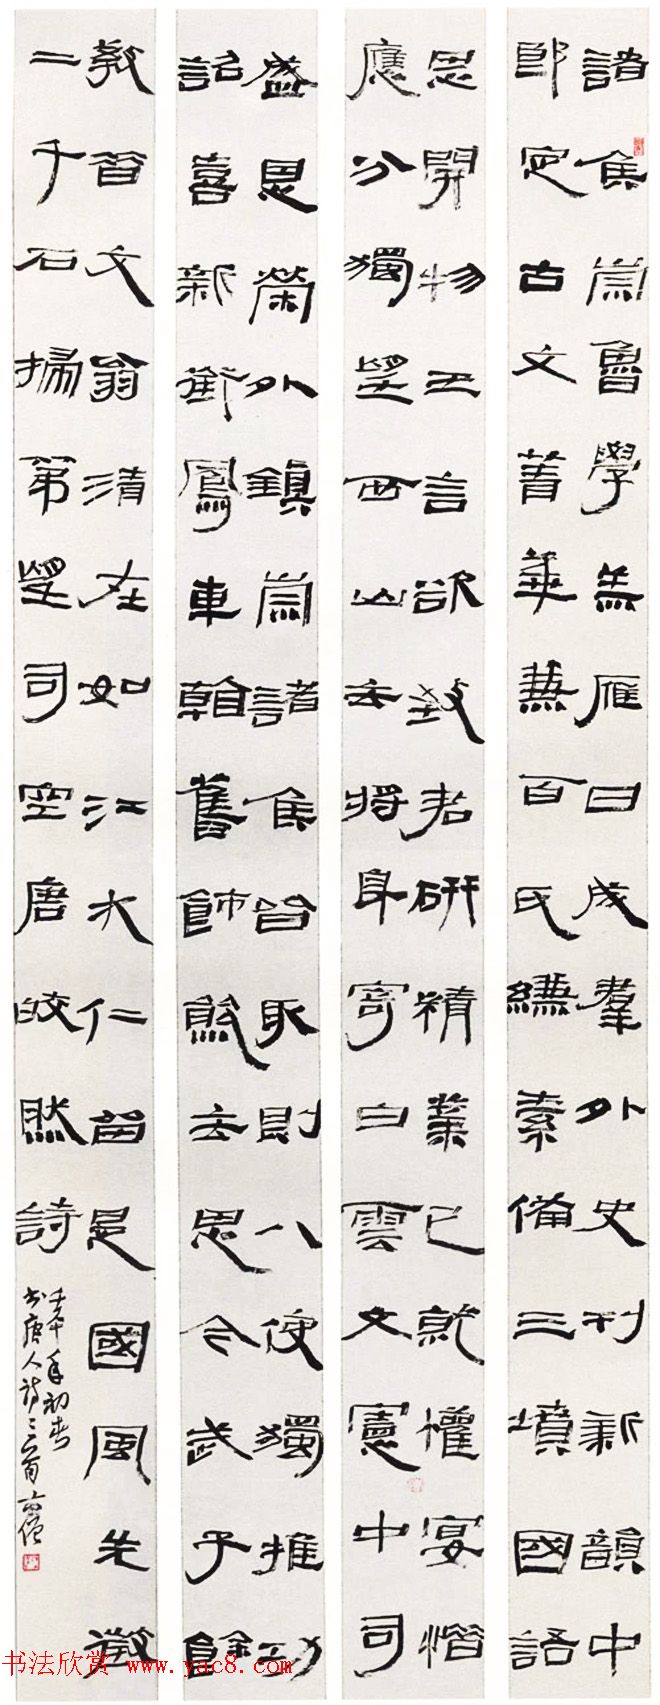 諸侯崇魯學羔雁日成羣外史刊新韻中
郎定古文菁華兼百氏縑素備三墳國語
思開物王言欲致君研精業已就懽宴惜
應分獨望西山去將身寄白雲文憲中司
盛恩榮外鎮崇諸侯皆取則八使獨推功
詔喜新銜鳳車看舊飾熊去思今武子餘
教昔文翁清在如江水仁留是國風先徵
二千石掃第望司空唐皎然詩
壬午年初春
书唐人詩二首
书法欣赏 www.yac8.com